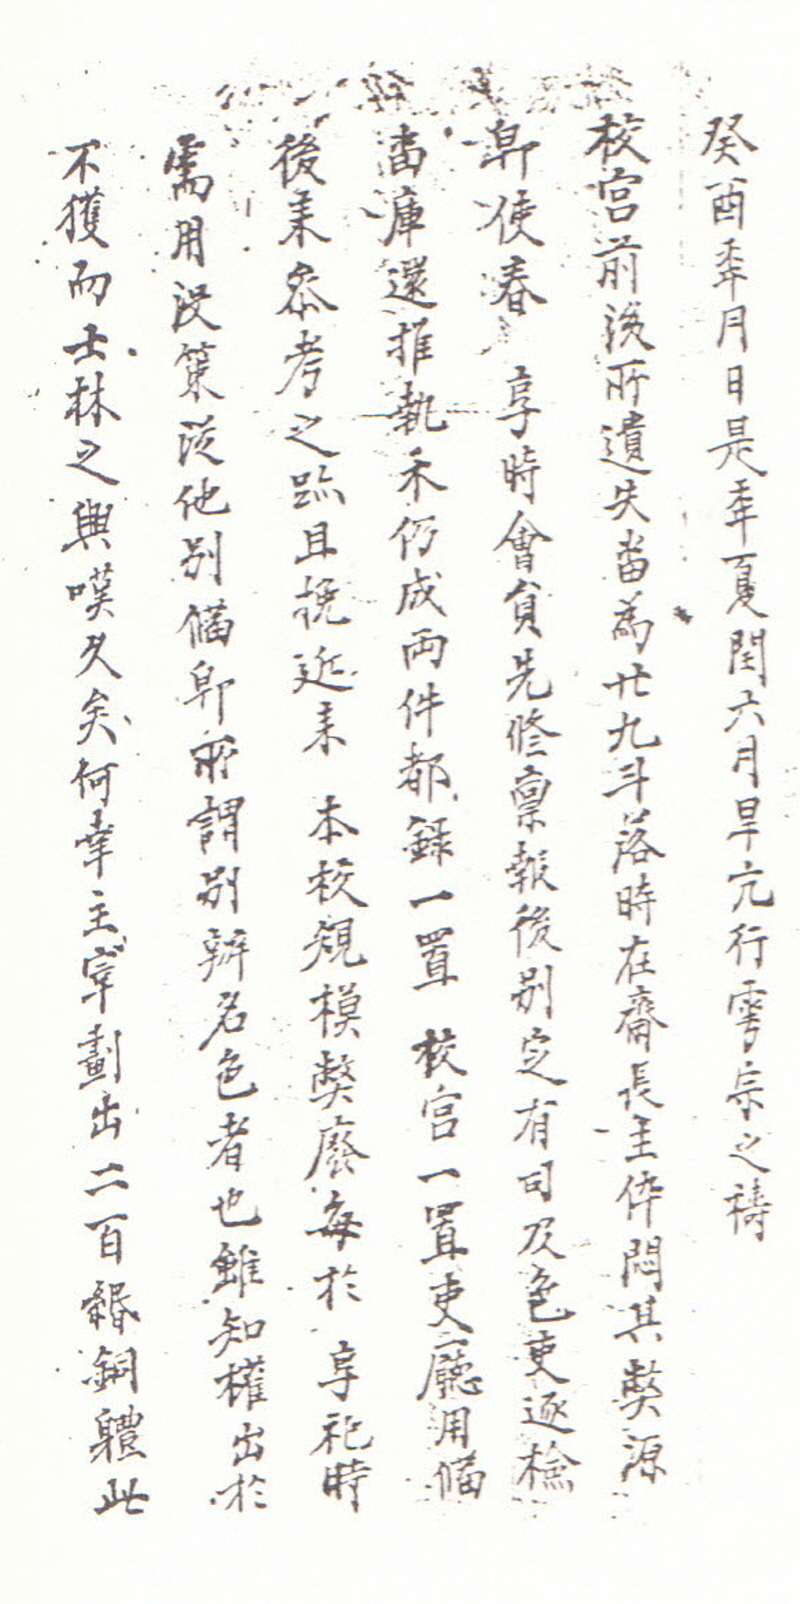 癸酉年月日是年夏閏六月旱亢行雩宗之禱
校宮前後所遺失畓為廿九斗落時在齋長主倅悶其弊源
即使春 享時會貟先修禀報後別定有司及色吏逐檢
畓庫還推執禾仍成兩件都録一置 校宮一置吏廳用備
後来叅考之跡且挽近来 本校規模弊廢每於 享祀時
需用沒策從他別備即所謂別辦名色者也雖知權出於
不獲而士林之興嘆久矣何幸主宰劃出二百緡銅軆此